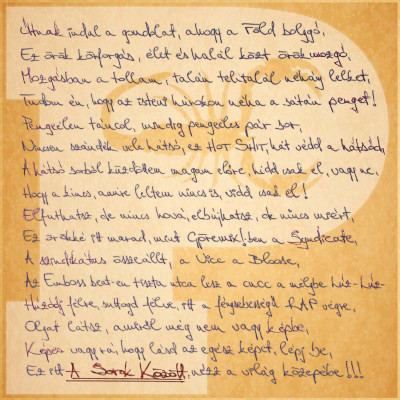 Útnak indul a gondolat, ahogy a Föld bolygó,
Ez örök körforgás, élet és halál közt örök mozgó,
Mozgásban a tollam, talán telitalál néhány lelket,
Tudom én, hogy az isteni húrokon néha a sátán penget!
Pengeélen táncol, mindig pengeéles pár sor,
Nincsen szándék vele hátsó, ez HOT SHIT, hát védd a hátsód,
A hátsó sorból küzdöttem magam előre, hidd csak el, vagy ne,
Hogy a kincs, amire leltem nincs is, vidd csak el!
Elfuthatsz, de nincs hová, elbújhatsz, de nincs miért,
Ez örökké itt marad, mint Göremik!ben a Syndicate,
A szindikátus összeállt, a Vicc a Bloose,
Az Emboss beat-en tiszta utca lesz a cucc a mélybe húz-
Húzódj félre, suttogd félve, itt a fénysebességű RAP végre,
Olyat látsz, amiről még nem vagy képbe,
Képes vagy rá, hogy lásd az egész képet, lépj be,
Ez itt A Sorok Között, nézz a világ közepébe!!!